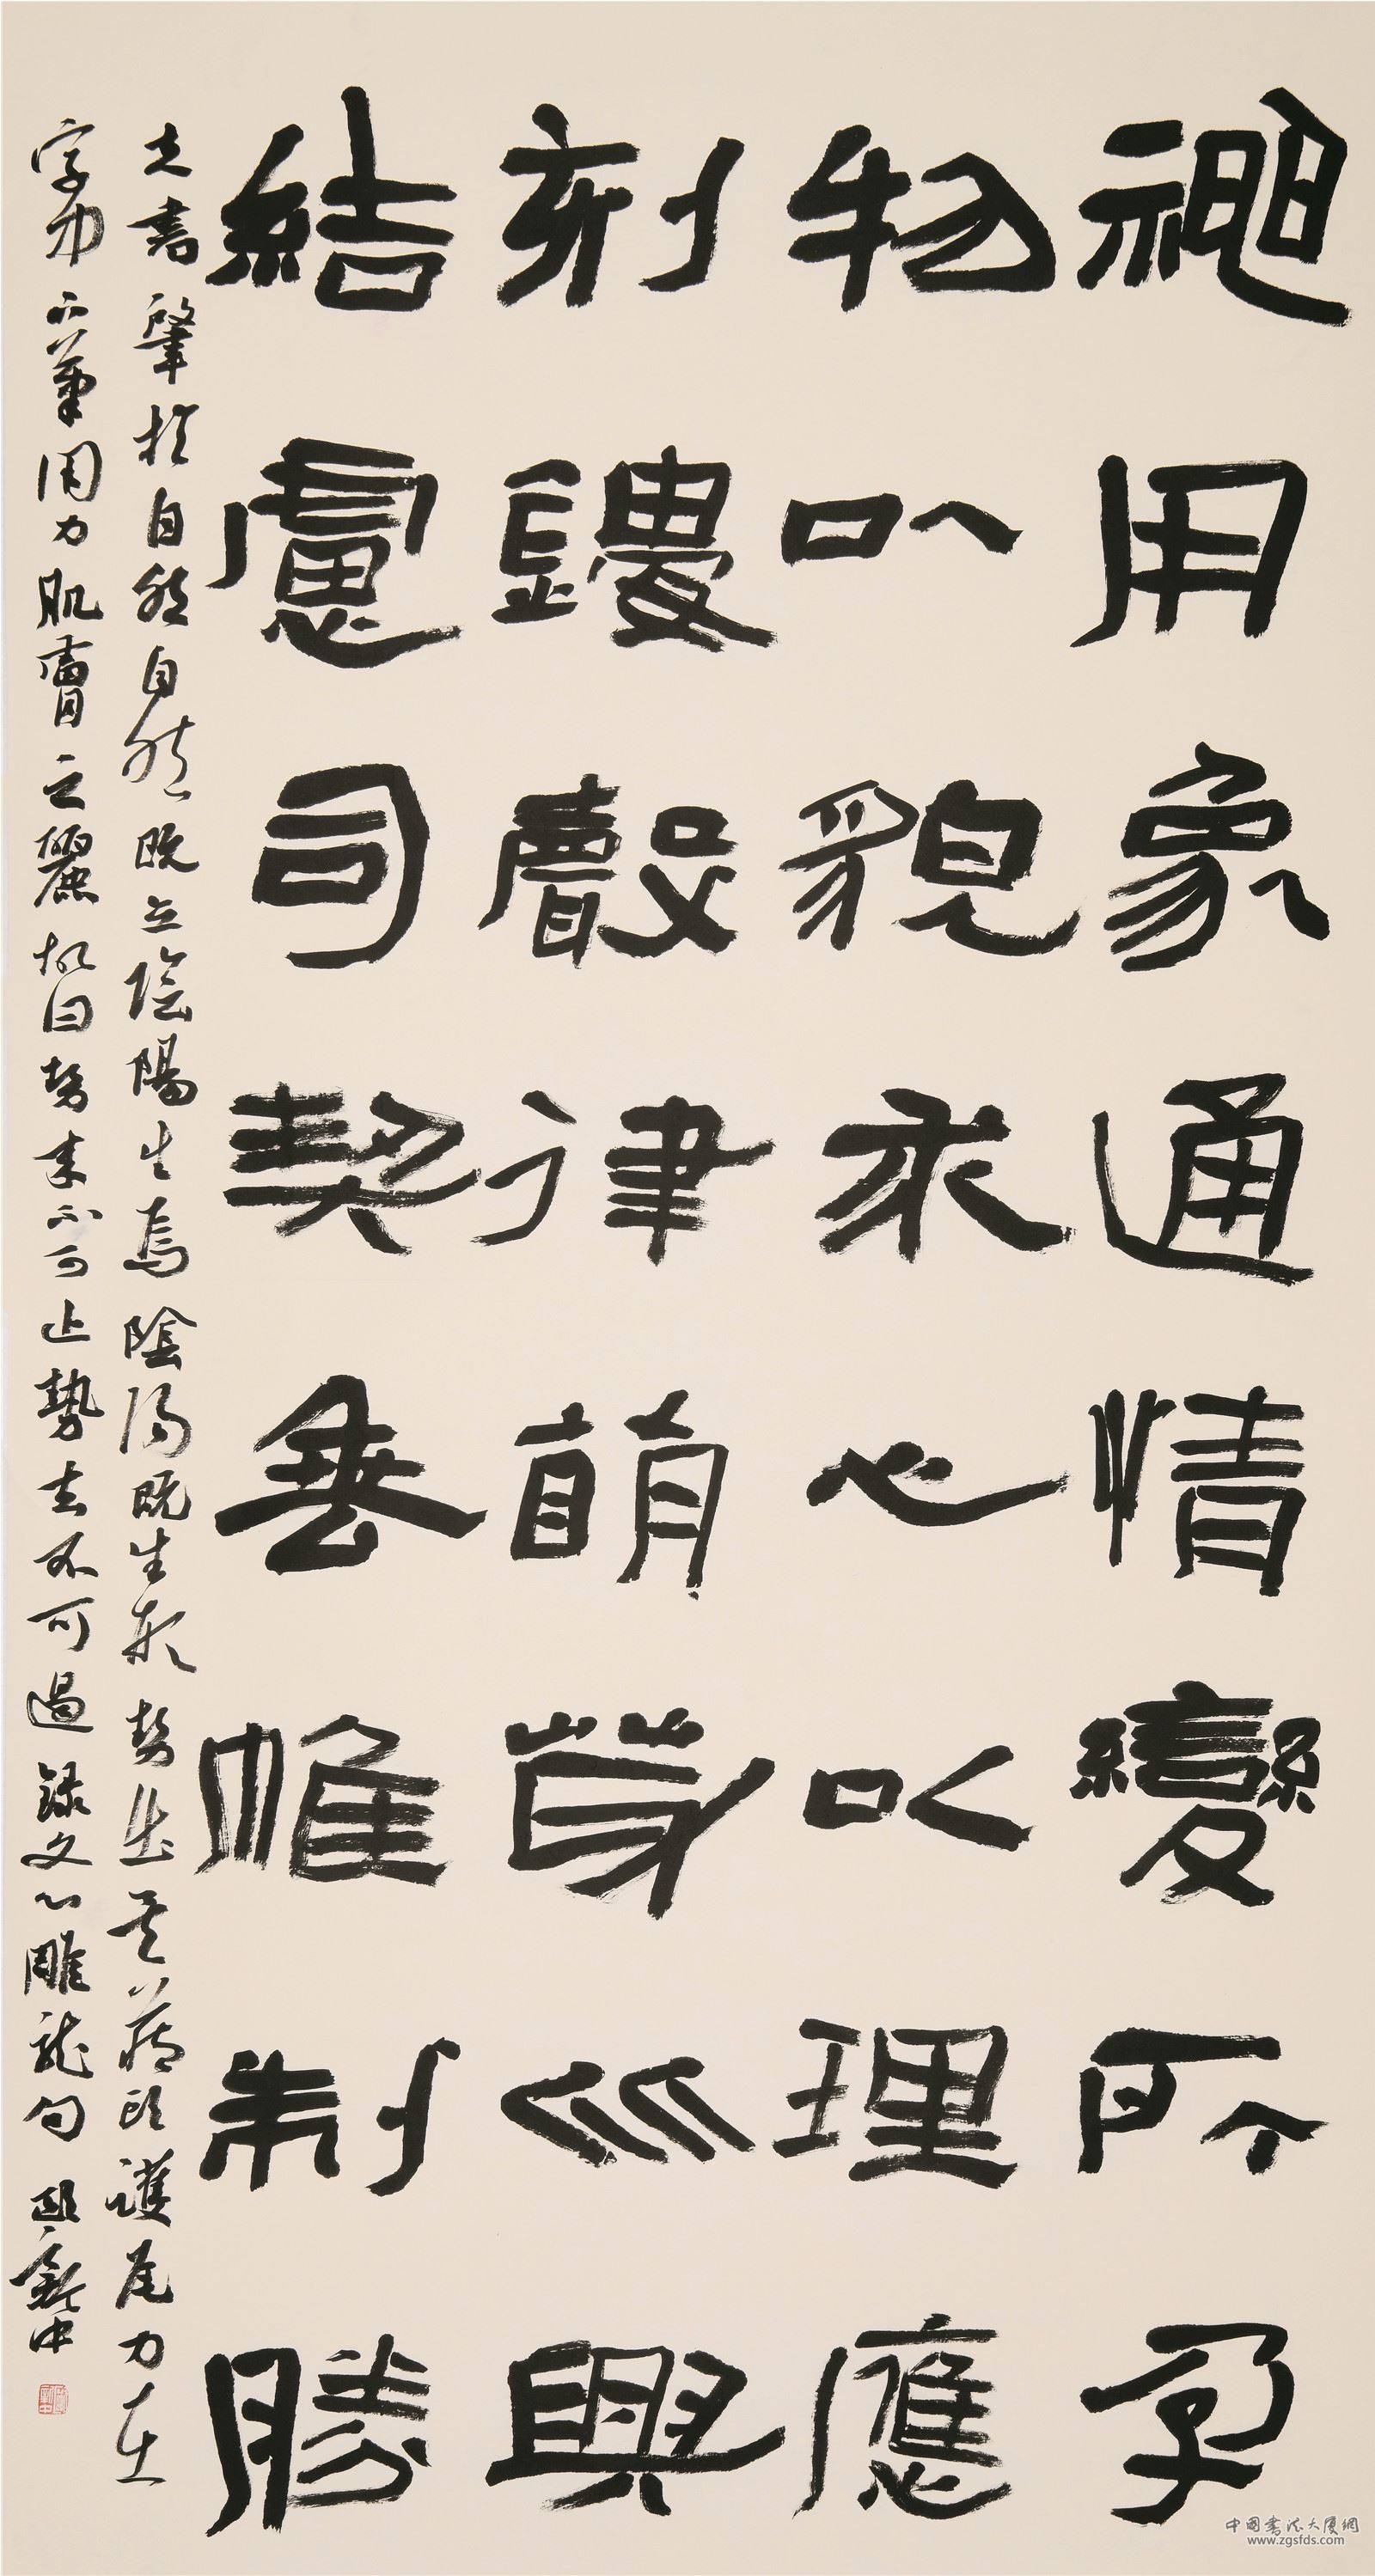 神用象通情變所孕
物以貌求心以理應
刻鏤聲律萌芽比興
結慮司契垂帷制勝
夫書肇於自然自然既立陰陽生焉陰陽既生形勢出矣藏頭護尾力在
字中下筆用力肌膚之麗故曰勢來不可止勢去不可遏錄文心雕龍句 新中
中國書法大廈網
www.zgsfds.com